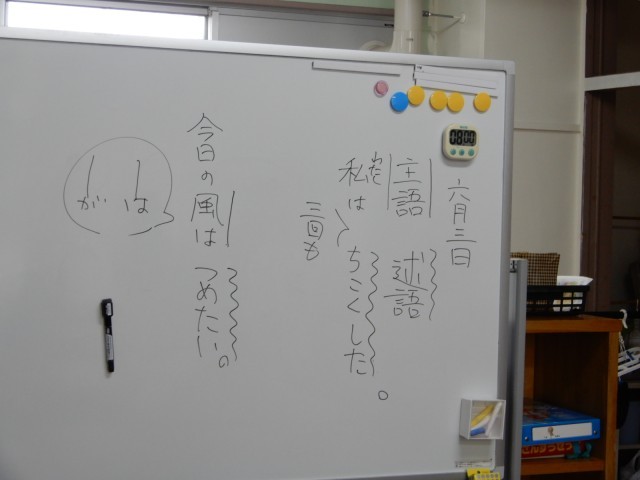 六月三日
主語 述語
私は ちこくした。
三回も
今日の風は つめたい。
「は
「が